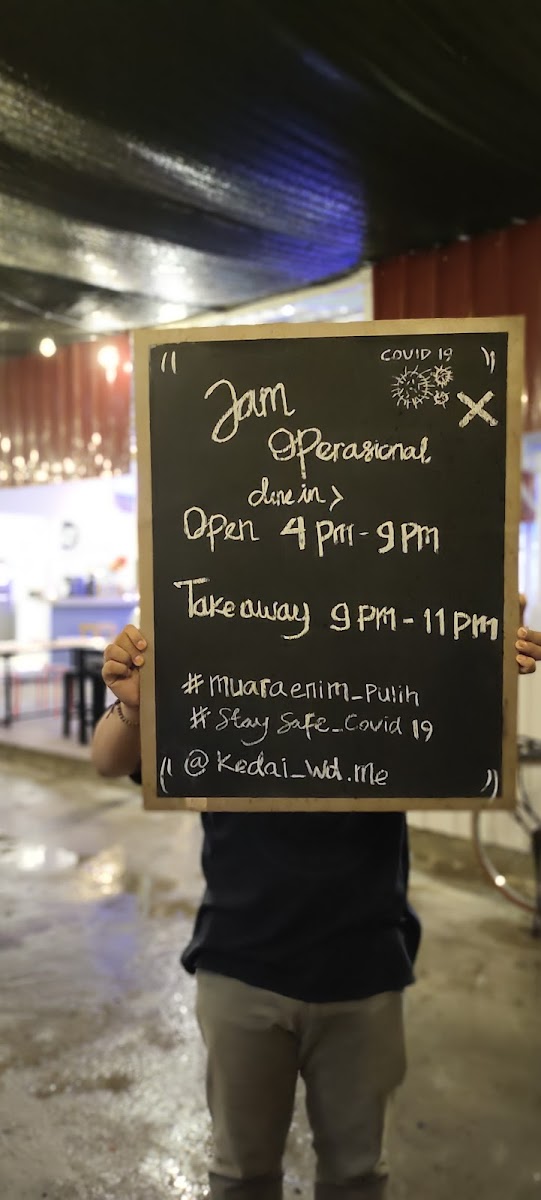 COVID 19
Jam
Operasional
dine in >
Open 4 pm - 9 pm
Take away 9 pm - 11 pm
#muaraenim_Pulih
#Stay Safe_Covid 19
@Kedai_wd.me